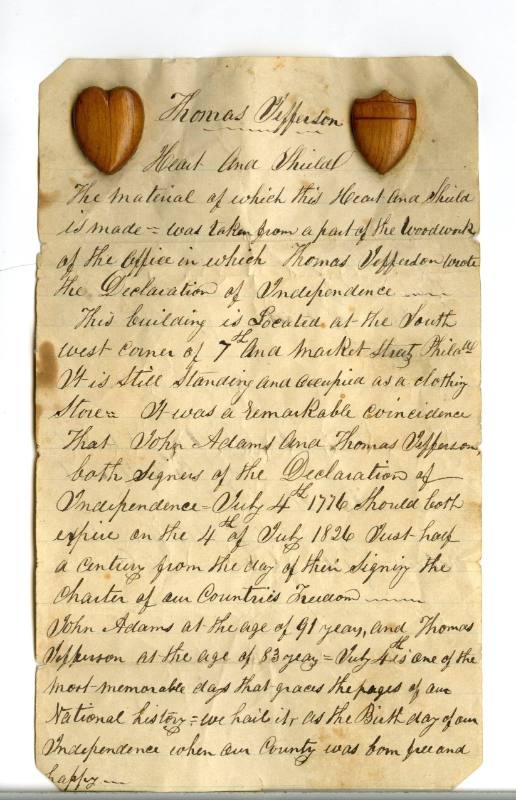 Thomas Jefferson
Heart And Shield
The material of which this Heart And Shield
is made = was taken from a part of the woodwork
of the office in which Thomas Jefferson wrote
the Declaration of Independence
This building is Located at the South
west corner of 7th And Market Street Philada
It is Still Standing and occupied as a clothing
Store = It was a remarkable coincidence
That John Adams And Thomas Jefferson,
both Signers of the Declaration of
Independence = July 4th 1776 Should both
expire on the 4th of July 1826 Just half
a century from the day of their Signing the
Charter of our Countries Freedom
John Adams at the age of 91 years, and Thomas
Jefferson at the age of 83 year = July 4th is one of the
most memorable days that graces the pages of our
National history = we hail it as the Birth day of our
Independence when our County was born free and
happy